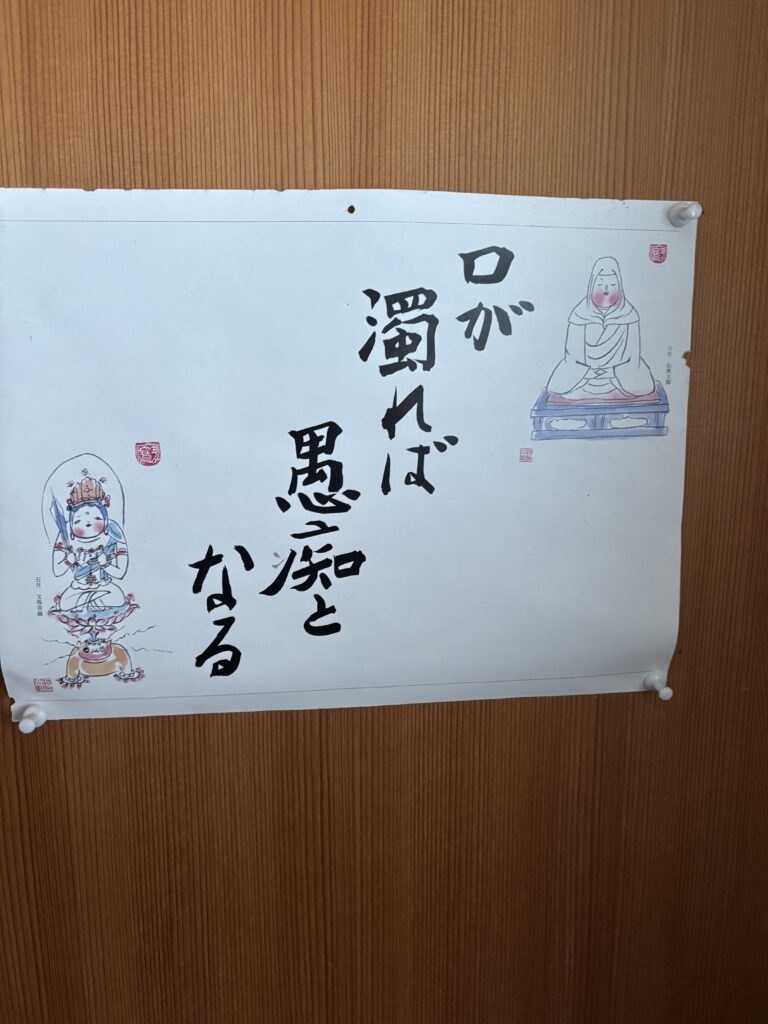 口が
濁れば
愚痴と
なる
六月 伝教大師
五月 文殊菩薩